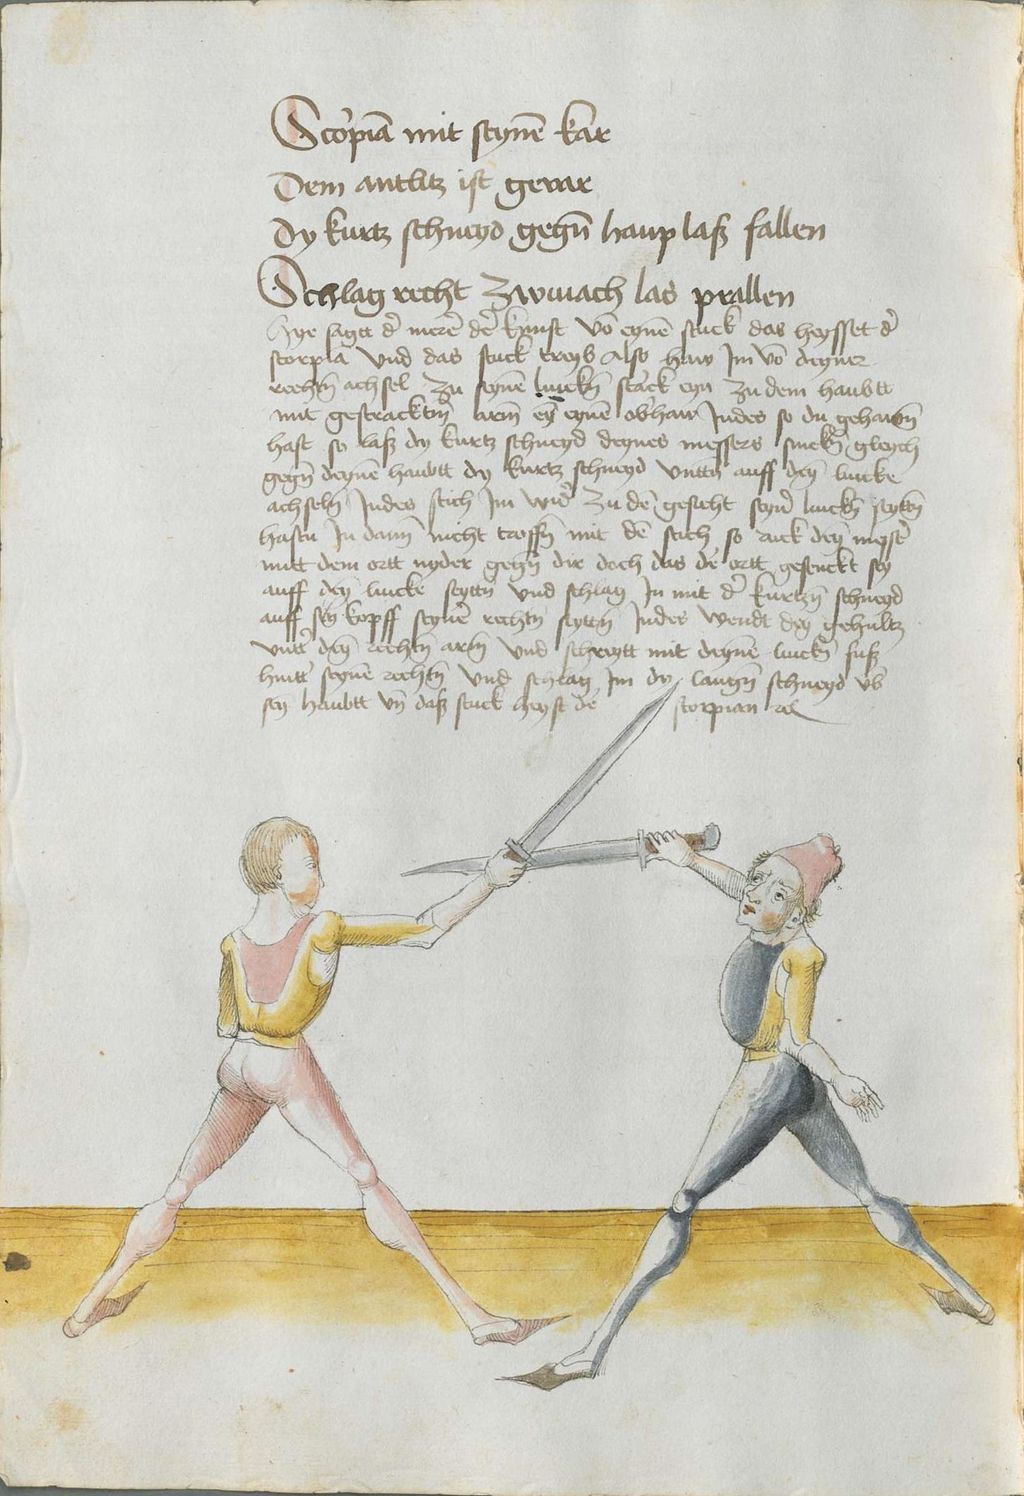 Scorpiā mit seynē kar
Dem antlitz ist gevar
Dy kurtz schneyd gegn̄ haup laß fallen
Schlag recht zwinach las prallen
Hye sagtt d' merē der kunst vō eynē stuck das heysset d'
scorpiā vnd das stuck treyb also haw Im vō deyner
rechtn̄ achsel zu seynē linckn̄ starck eyn zu dem haubtt
mit gestracktm̄ arm eȳ eynē obhaw Indes so du gehawn̄
hast so laß dy kurtz schneyd deynes messers sinckn̄ gleych
gegn̄ deynē haubtt dy kurtz schneyd vnttn̄ auff deȳ lincke
achseln̄ Indes stich Im wid' zu dē gesicht seyn' linckn̄ seyttn̄
hastu In dann nicht troffn̄ mit dē stich so ruck deȳ mess'
mitt dem ortt nyder gegn̄ dir doch das de' ortt gesenckt sey
auff deȳ lincke seyttn̄ vnd schlag In mit d' kurtzn̄ schneyd
auff seȳ kopff seyner rechtn̄ seyttn̄ Indes wendt deȳ gehultz
vntt' deȳ rechtn̄ arm̄ vnd schreytt mit deynē linckn̄ fuß
hintt' seynē rechtn̄ vnd schlag Im dy langn̄ schneyd vb
seȳ haubtt vn̄ daß stuck heyst de scorpian